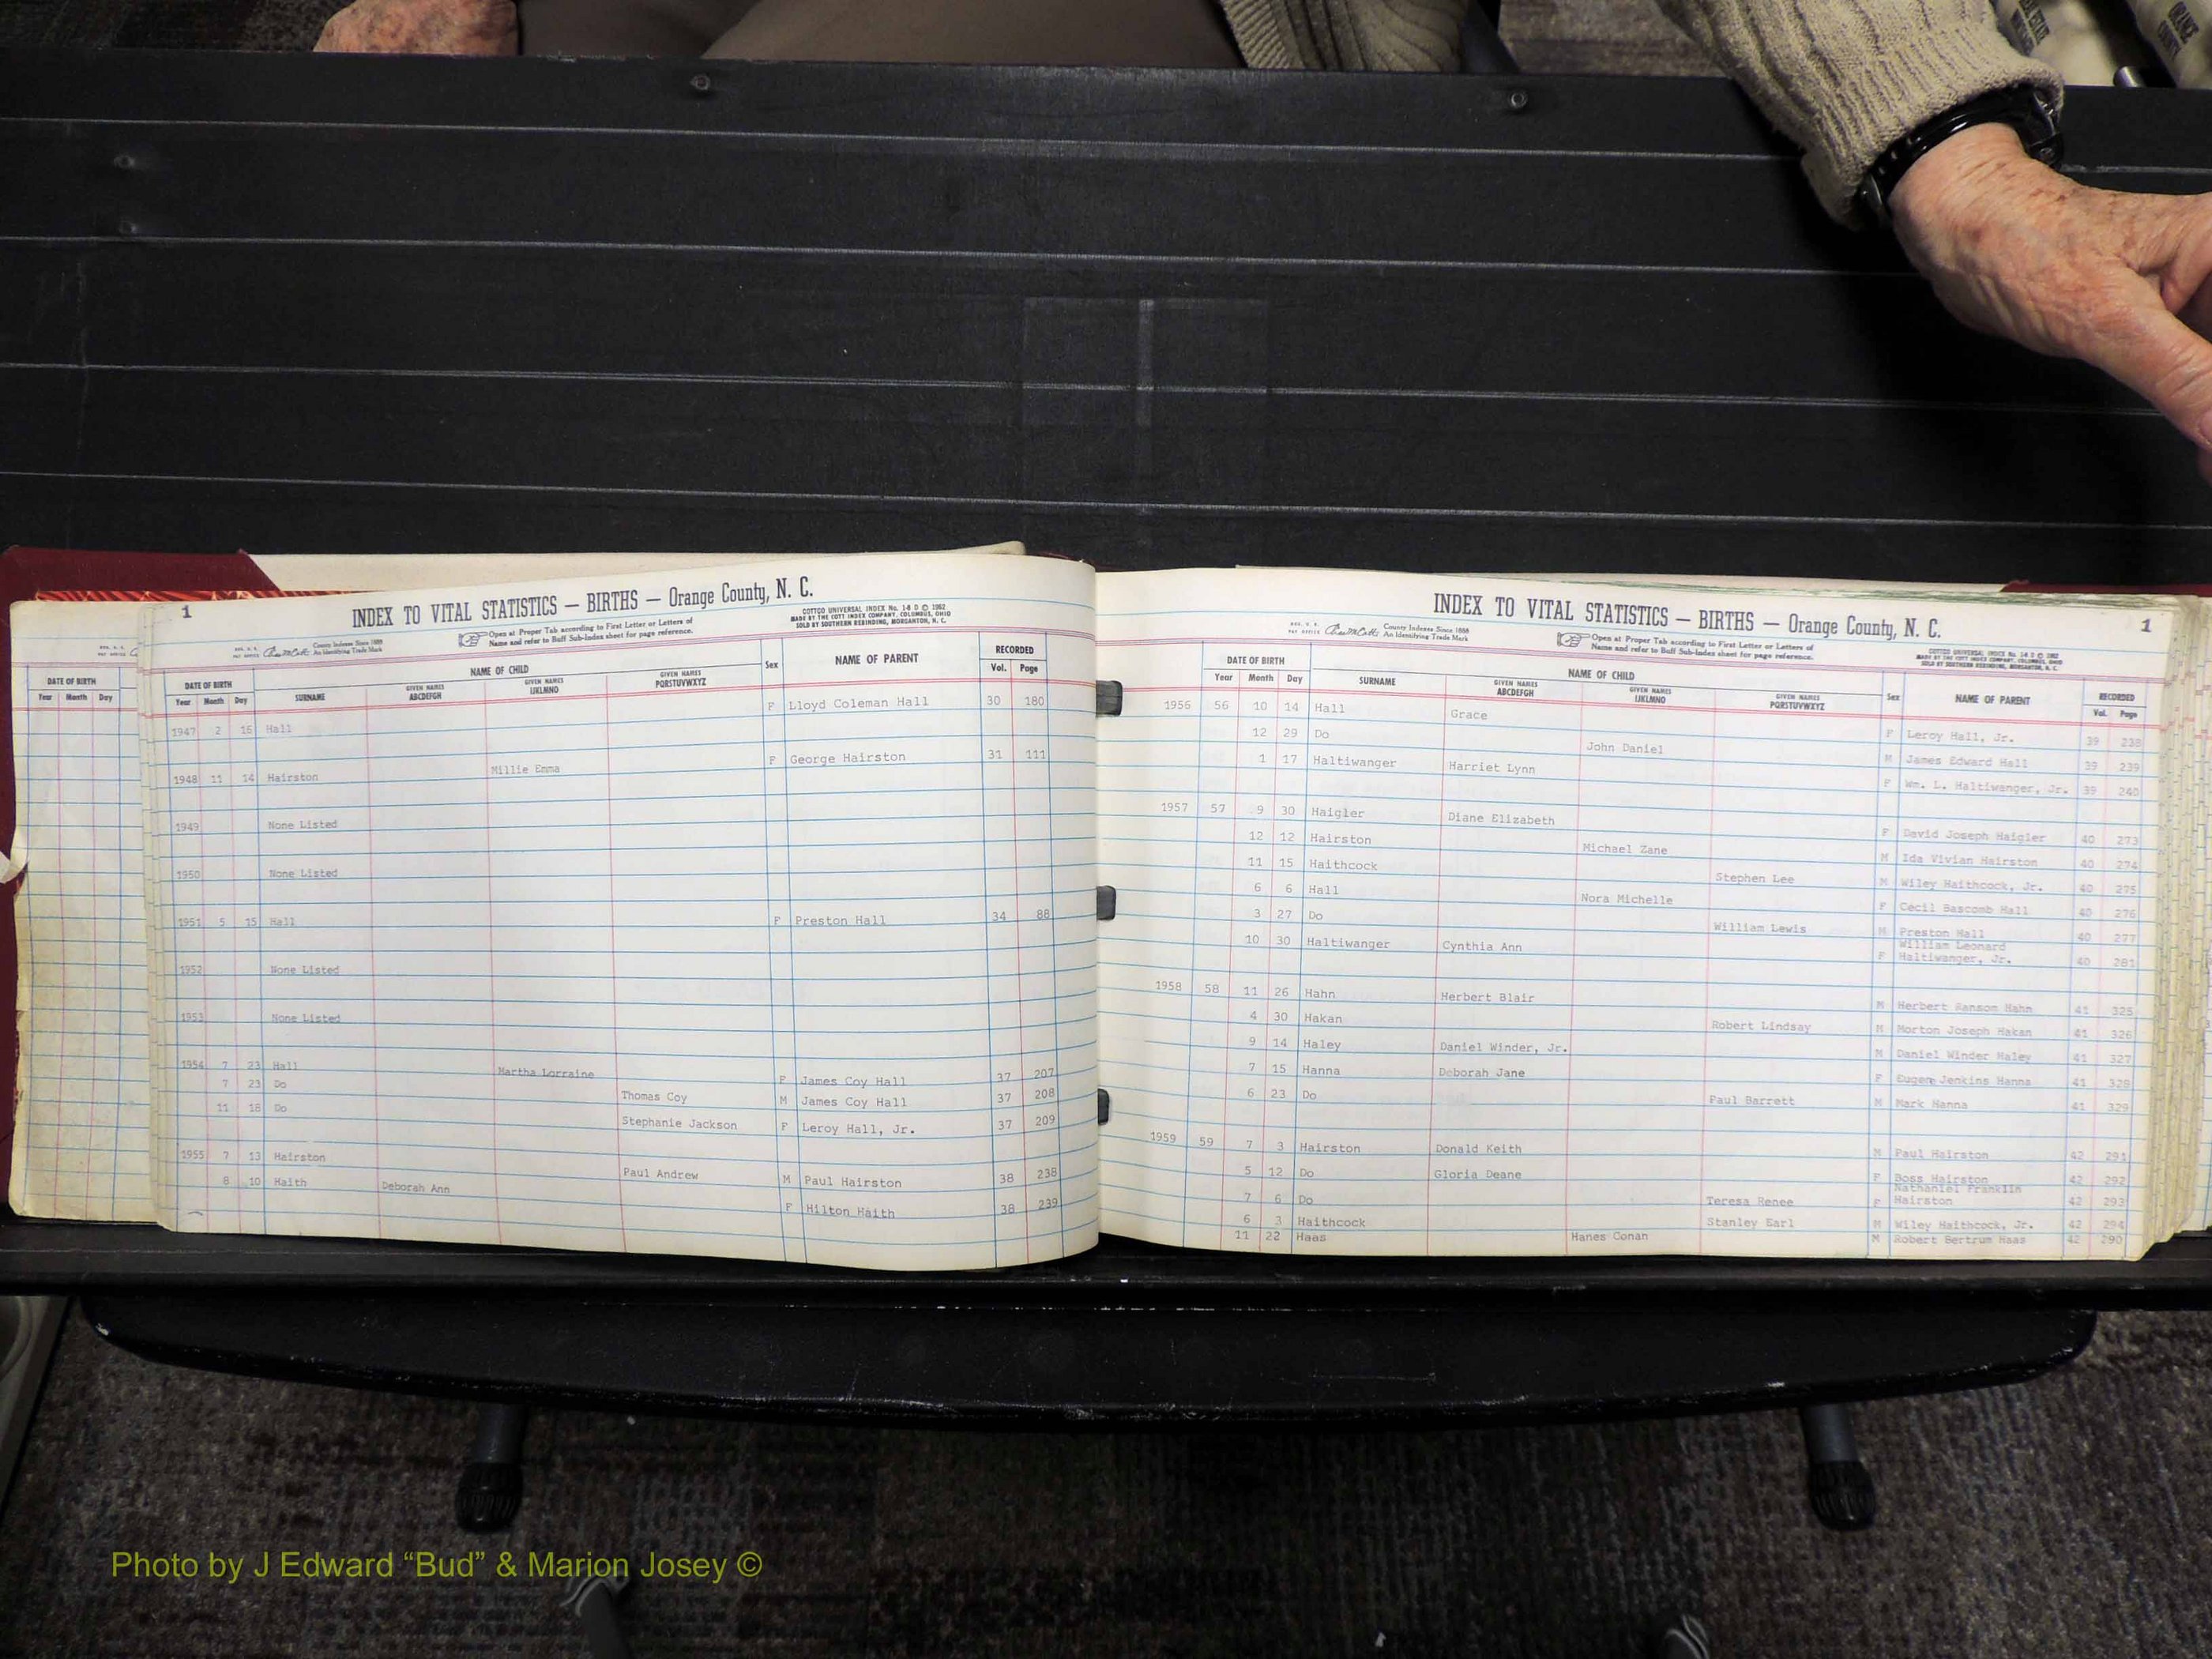 ORANGE COUNTY
1
INDEX TO VITAL STATISTICS — BIRTHS — Orange County, N. C.
COTTCO UNIVERSAL INDEX No. 1-8 D © 1962
MADE BY THE COTT INDEX COMPANY, COLUMBUS, OHIO
SOLD BY SOUTHERN REBINDING, MORGANTON, N. C.
County Indexes Since 1888
An Identifying Trade Mark
Open at Proper Tab according to First Letter or Letters of
Name and refer to Buff Sub-Index sheet for page reference.
DATE OF BIRTH
Year Month Day
DATE OF BIRTH NAME OF CHILD Sex NAME OF PARENT RECORDED
Year Month Day SURNAME GIVEN NAMES ABCDEFGH GIVEN NAMES IJKLMNO GIVEN NAMES PQRSTUVWXYZ Vol. Page
1947 2 16 Hall F Lloyd Coleman Hall 30 180
1948 11 14 Hairston Millie Emma F George Hairston 31 111
1949 None Listed
1950 None Listed
1951 5 15 Hall F Preston Hall 34 88
1952 None Listed
1953 None Listed
1954 7 23 Hall Martha Lorraine F James Coy Hall 37 207
7 23 Do Thomas Coy M James Coy Hall 37 208
11 18 Do Stephanie Jackson F Leroy Hall, Jr. 37 209
1955 7 13 Hairston Paul Andrew M Paul Hairston 38 238
8 10 Haith Deborah Ann F Hilton Haith 38 239
INDEX TO VITAL STATISTICS — BIRTHS — Orange County, N. C.
1
County Indexes Since 1888
An Identifying Trade Mark
Open at Proper Tab according to First Letter or Letters of
Name and refer to Buff Sub-Index sheet for page reference.
COTTCO UNIVERSAL INDEX No. 1-8 D © 1962
MADE BY THE COTT INDEX COMPANY, COLUMBUS, OHIO
SOLD BY SOUTHERN REBINDING, MORGANTON, N. C.
DATE OF BIRTH NAME OF CHILD Sex NAME OF PARENT RECORDED
Year Month Day SURNAME GIVEN NAMES ABCDEFGH GIVEN NAMES IJKLMNO GIVEN NAMES PQRSTUVWXYZ Vol. Page
1956 56 10 14 Hall Grace F Leroy Hall, Jr. 39 238
12 29 Do John Daniel M James Edward Hall 39 239
1 17 Haltiwanger Harriet Lynn F Wm. L. Haltiwanger, Jr. 39 240
1957 57 9 30 Haigler Diane Elizabeth F David Joseph Haigler 40 273
12 12 Hairston Michael Zane M Ida Vivian Hairston 40 274
11 15 Haithcock Stephen Lee M Wiley Haithcock, Jr. 40 275
6 6 Hall Nora Michelle F Cecil Bascomb Hall 40 276
3 27 Do William Lewis M Preston Hall 40 277
10 30 Haltiwanger Cynthia Ann F William Leonard Haltiwanger, Jr. 40 281
1958 58 11 26 Hahn Herbert Blair M Herbert Ransom Hahn 41 325
4 30 Hakan Robert Lindsay M Morton Joseph Hakan 41 326
9 14 Haley Daniel Winder, Jr. M Daniel Winder Haley 41 327
7 15 Hanna Deborah Jane F Eugene Jenkins Hanna 41 328
6 23 Do Paul Barrett M Mark Hanna 41 329
1959 59 7 3 Hairston Donald Keith M Paul Hairston 42 291
5 12 Do Gloria Deane F Boss Hairston 42 292
7 6 Do Teresa Renee F Nathaniel Franklin Hairston 42 293
6 3 Haithcock Stanley Earl M Wiley Haithcock, Jr. 42 294
11 22 Haas Hanes Conan M Robert Bertrum Haas 42 290
Photo by J Edward “Bud” & Marion Josey ©